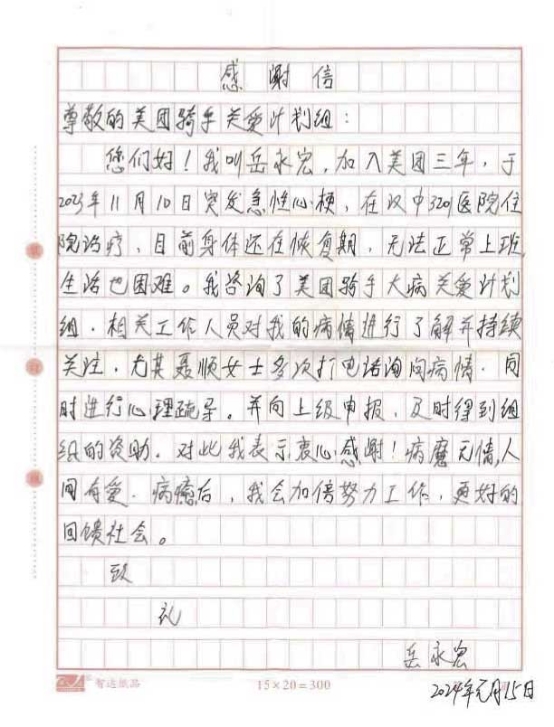 感谢信
尊敬的美团骑手关爱计划组：
您们好！我叫岳永宏，加入美团三年，于
2023年11月10日突发急性心梗，在汉中3201医院住
院治疗，目前身体还在恢复期，无法正常上班，
生活也困难。我咨询了美团骑手大病关爱计划
组，相关工作人员对我的病情进行了解并持续
关注，尤其聂顺女士多次打电话询问病情，同
时进行心理疏导。并向上级申报，及时得到组
织的资助，对此我表示衷心感谢！病魔无情，人
间有爱，病癒后，我会加倍努力工作，更好的
回馈社会。
致
礼
岳永宏
2024年元月15日
15×20=300